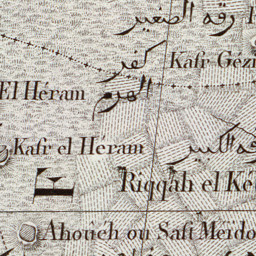 رقه الصغير
Kafr Gézi
كفر
El Héram
الهرم
Kafr el Héram
قه الكبير
Riqqah el Ké
Ahouéh ou Saft Meïdo